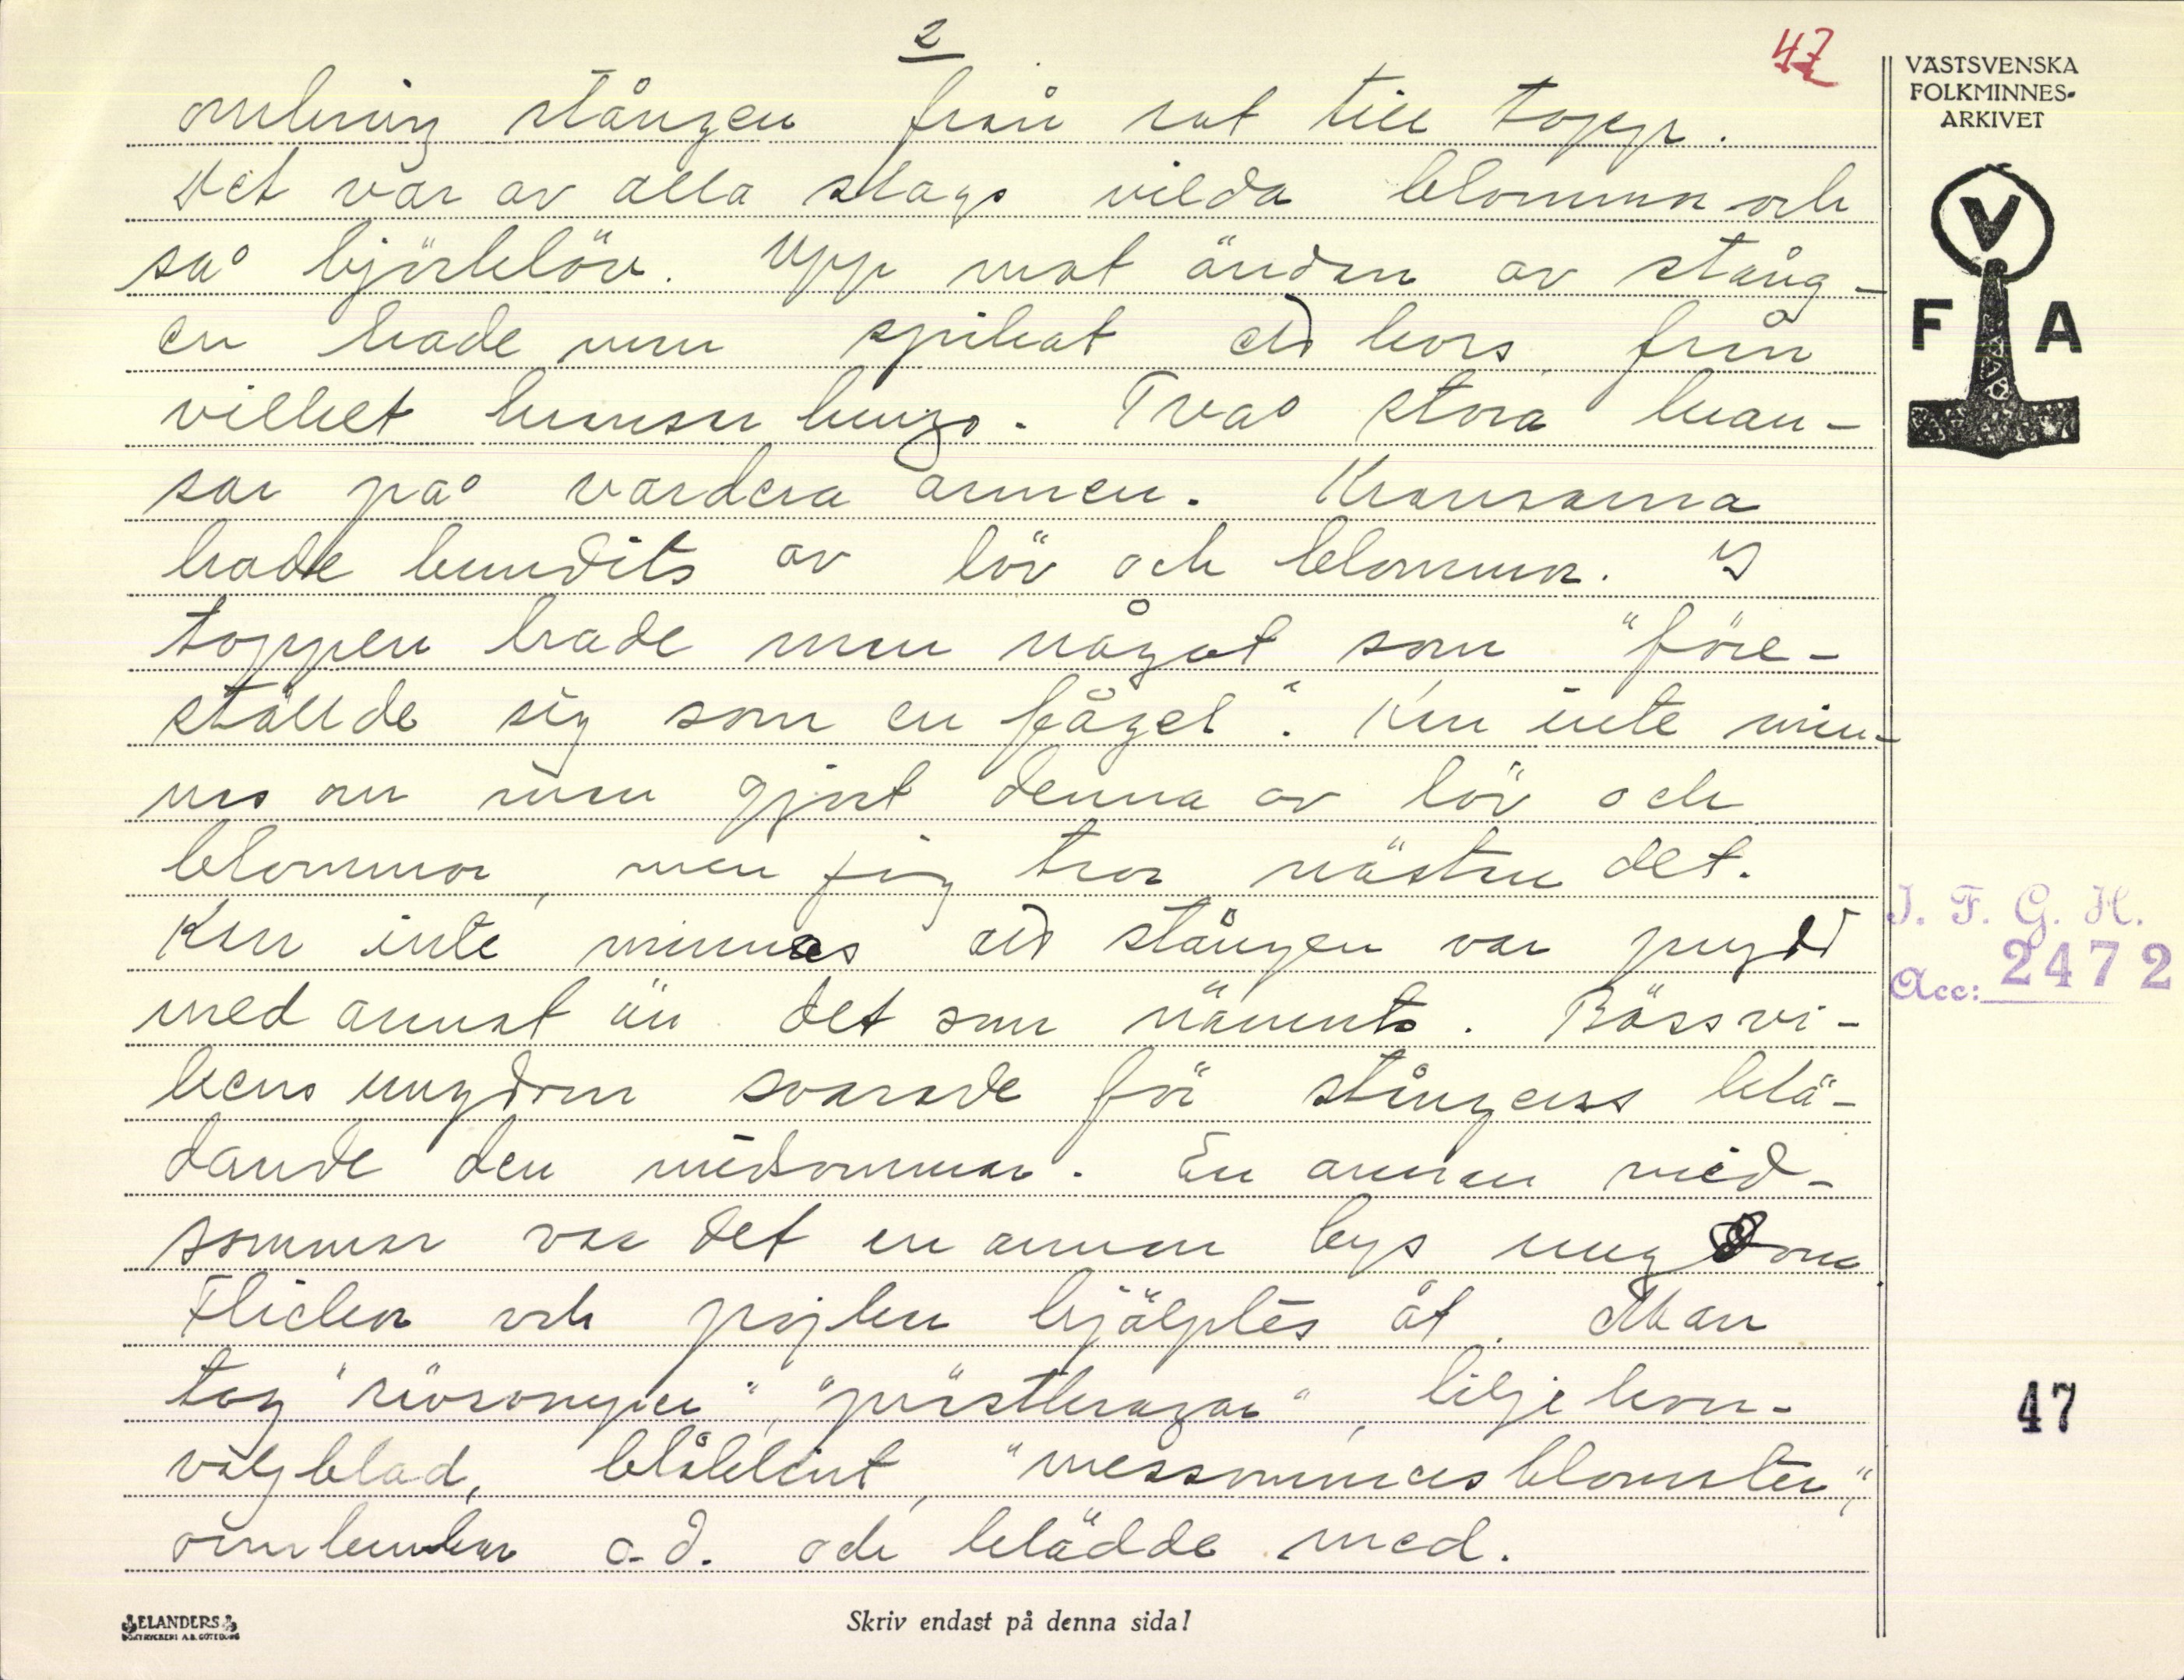 2
47
VÄSTSVENSKA
FOLKMINNES-
ARKIVET
V
F A
omkring stången från rot till topp.
Det var av alla slags vilda blommor och
så björklöv. Upp mot ändan av stång-
en hade man spikat ett kors från
vilket kransar hängs. Två stora kran-
sar på vardera armen. Kransarna
hade bundits av löv och blommor. I
toppen hade man något som "före-
ställde sig som en fågel". Kan inte min-
nas om man gjort denna av löv och
blommor, men jag tror nästan det.
Kan inte minnas att stången var prydd
med annat än det som nämnts. Bössvi-
kens ungdom svarade för stångens klä-
dande den midsommar. En annan mid-
sommar var det en annan bys ungdom
Flickor och pojkar hjälptes åt. Man
tog "prästkragar", liljekon-
valjblad, blåklint, "messommersblomster",
ormbunkar o.d. och klädde med.
I. F. G. H.
Acc: 2472
47
ELANDERS
BOKTRYCKERI A.B. GÖTEBORG
Skriv endast på denna sida!